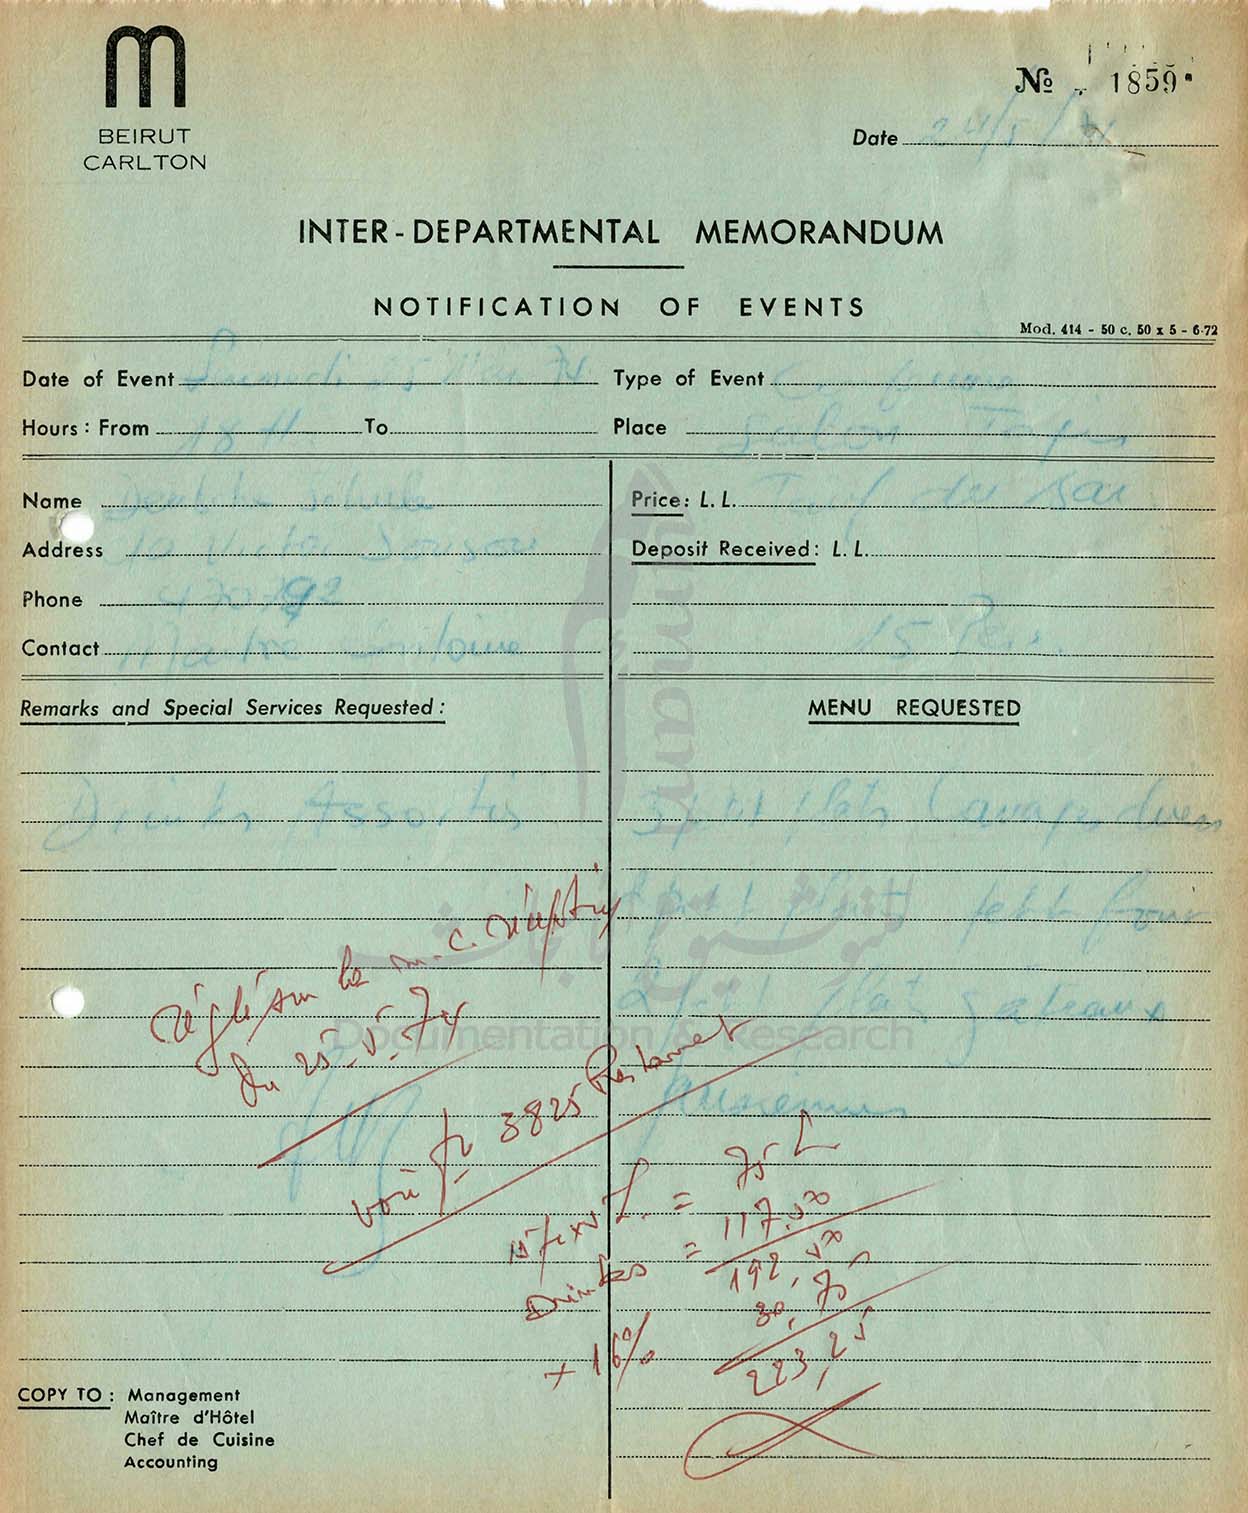 BEIRUT
CARLTON
№ 1859
Date 24/5/
INTER-DEPARTMENTAL MEMORANDUM
NOTIFICATION OF EVENTS
Mod. 414 - 50 c. 50 x 5 - 6-72
Date of Event Samedi 25 Mai 74 Type of Event
Hours: From 18 H. To Place Salon
Name Deutche Schule Price: L. L. Tarif du Bar
Address c/o Victor Deposit Received: L. L.
Phone 470792
Contact Maitre Antoine 15 Pers.
Remarks and Special Services Requested: MENU REQUESTED
Drinks Assortis 3 petit plats Canapes divers
petit plats petit four
2 petit plat gateaux
réglé sur la m-c. réception
du 25-5-74
voir fr 3825 Restaurant
15 p x 5 L. = 75 L
Drinks = 117.50
192,50
+ 16% 30,75
223,25
COPY TO: Management
Maître d'Hôtel
Chef de Cuisine
Accounting
Umnam
للتوثيق والأبحاث
Documentation & Research